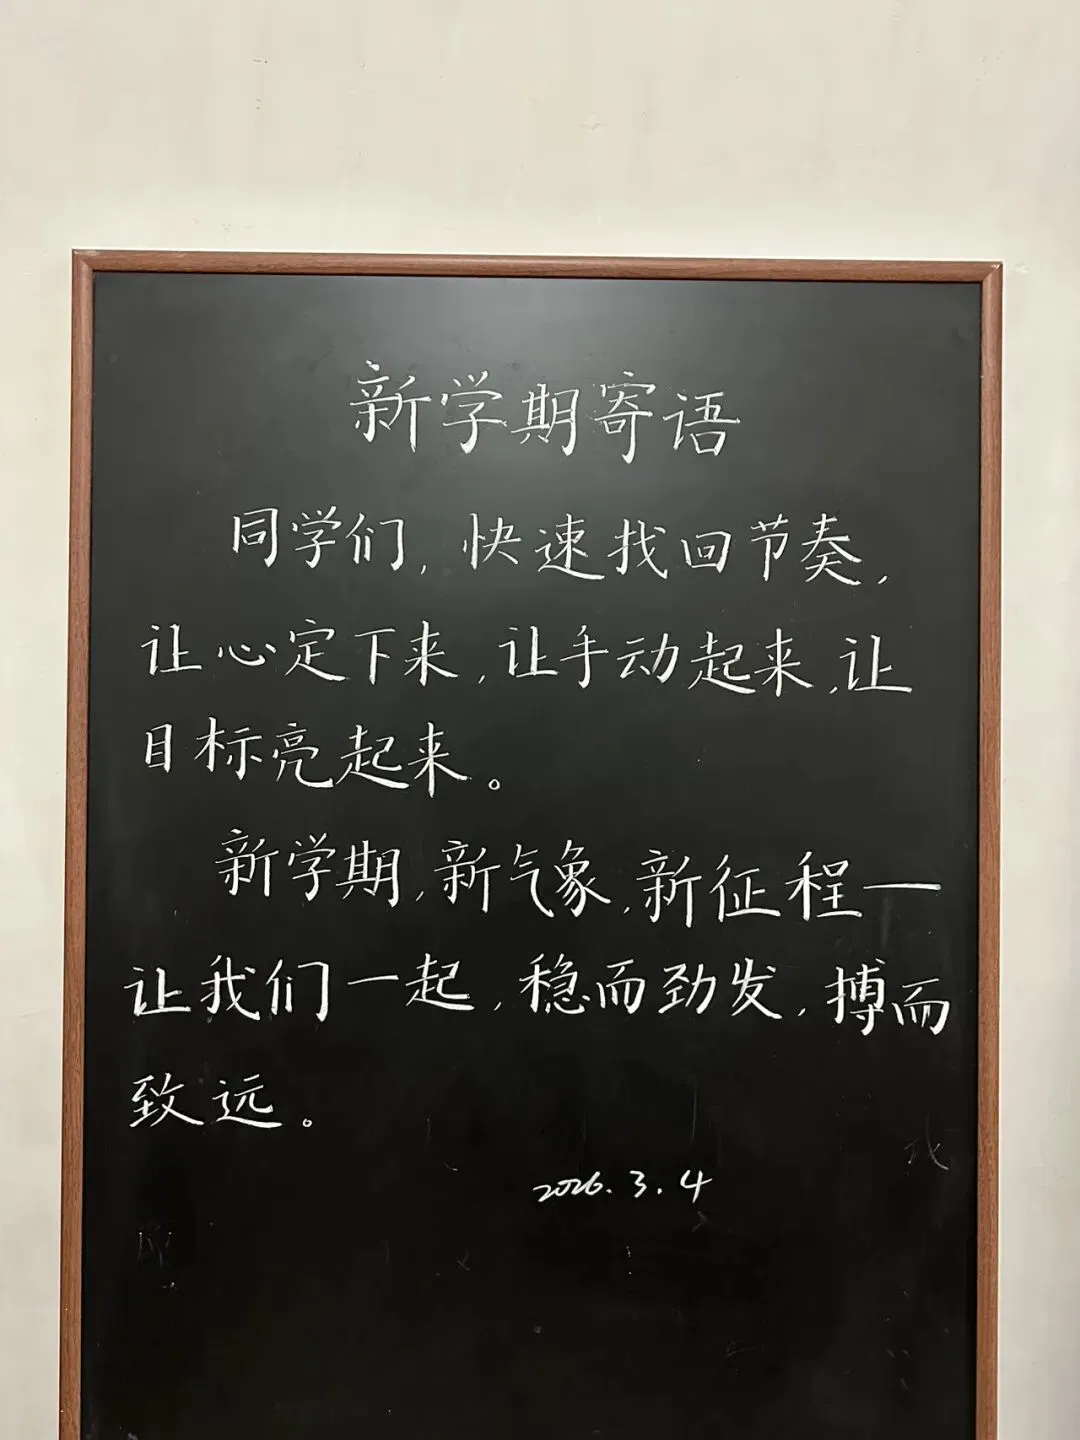 新学期寄语
同学们,快速找回节奏,
让心定下来,让手动起来,让
目标亮起来。
新学期,新气象,新征程—
让我们一起,稳而劲发,搏而
致远。
2026.3.4